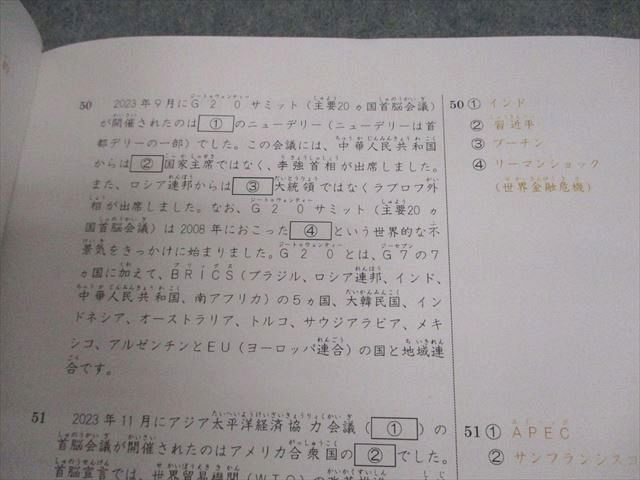 50 2023年9月にG20サミット（主要20ヵ国首脳会議）
が開催されたのは①のニューデリー（ニューデリーは首
都デリーの一部）でした。この会議には、中華人民共和国
からは②国家主席ではなく、李強首相が出席しました。
また、ロシア連邦からは③大統領ではなくラブロフ外
相が出席しました。なお、G20サミット（主要20ヵ
国首脳会議）は2008年におこった④という世界的な不
景気をきっかけに始まりました。G20とは、G7の7
ヵ国に加えて、BRICS（ブラジル、ロシア連邦、インド、
中華人民共和国、南アフリカ）の5ヵ国、大韓民国、イン
ドネシア、オーストラリア、トルコ、サウジアラビア、メキ
シコ、アルゼンチンとEU（ヨーロッパ連合）の国と地域連
合です。
50 ① インド
② 習近平
③ プーチン
④ リーマンショック
（世界金融危機）
51 2023年11月にアジア太平洋経済協力会議（①）の
首脳会議が開催されたのはアメリカ合衆国の②でした。
首脳宣言では、世界貿易機関（WTO）の改革推進
51 ① APEC
② サンフランシスコ